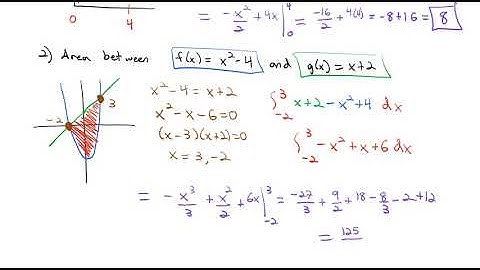 = -x²/2 + 4x |₀⁴ = -16/2 + 4(4) = -8+16 = 8
0 4
2) Area between f(x) = x²-4 and g(x) = x+2
-2 3
x²-4 = x+2
x²-x-6=0
(x-3)(x+2)=0
x = 3, -2
∫₋₂³ x+2-x²+4 dx
∫₋₂³ -x²+x+6 dx
= -x³/3 + x²/2 + 6x |₋₂³ = -27/3 + 9/2 + 18 - 8/3 - 2 + 12
= 125/